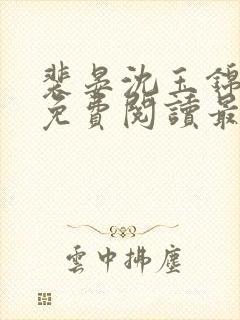 裴晏沈玉錦
免費閱讀最
雲中拂塵